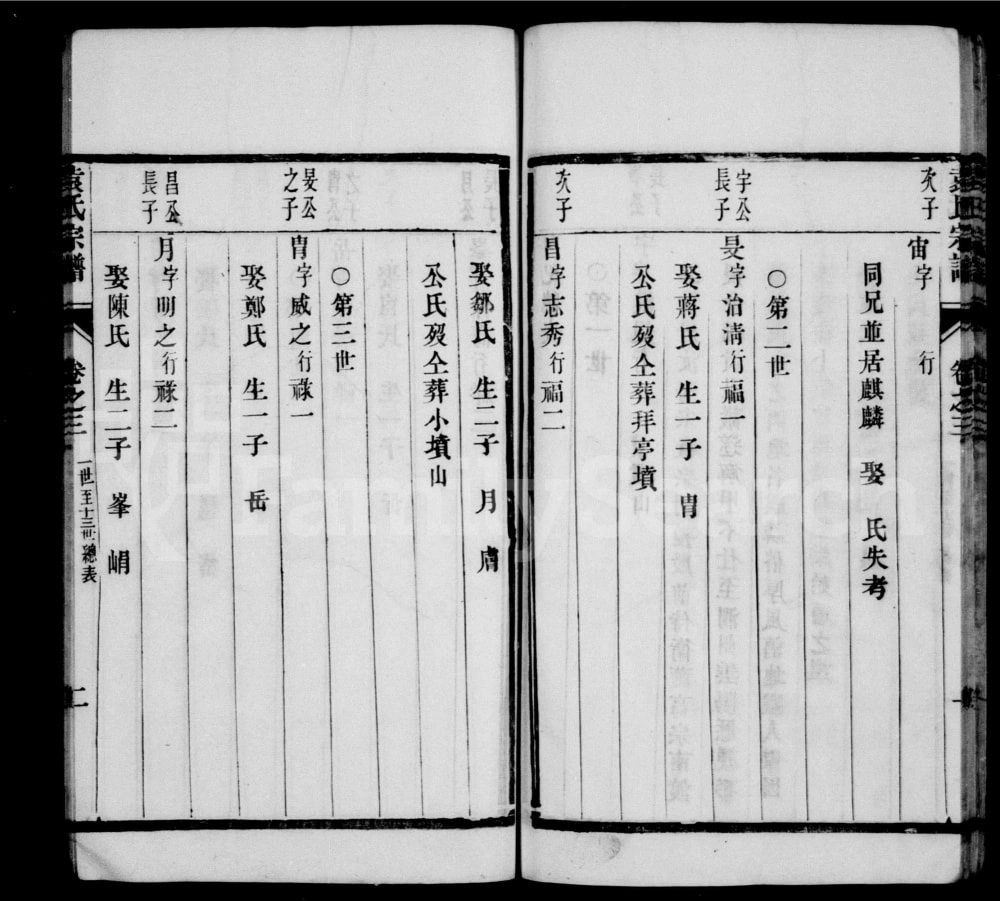 袁氏宗譜
卷之三
一
次子
宙字 行
同兄並居麒麟 娶 氏失考
○第二世
字公長子
旻字治清行福一
娶蔣氏 生一子 胄
公氏歿仝葬拜亭墳
次子
昌字志秀行福二
娶鄒氏 生二子 月 膚
公氏歿仝葬小墳山
○第三世
旻公之子
胄字威之行祿一
娶鄭氏 生一子 岳
昌公長子
月字明之行祿二
娶陳氏 生二子 峯 峭
袁氏宗譜
卷之三
一世至十三世總表
二